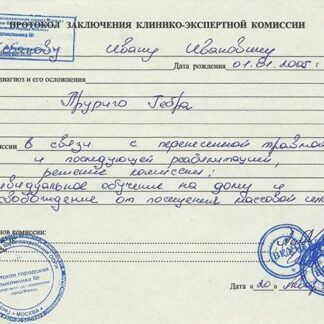 ПРОТОКОЛ ЗАКЛЮЧЕНИЯ КЛИНИКО-ЭКСПЕРТНОЙ КОМИССИИ
Ивану Ивановичу
Дата рождения 01.01.2005 г
диагноз и его осложнения
Пруриго Гебра
иссии в связи с перенесенной травмой
и последующей реабилитацией,
решение комиссии:
ивидуальное обучение на дому и
свобождение от посещения массовой
нов комиссии:
тская городская
иклиника №
Дата « 20 »